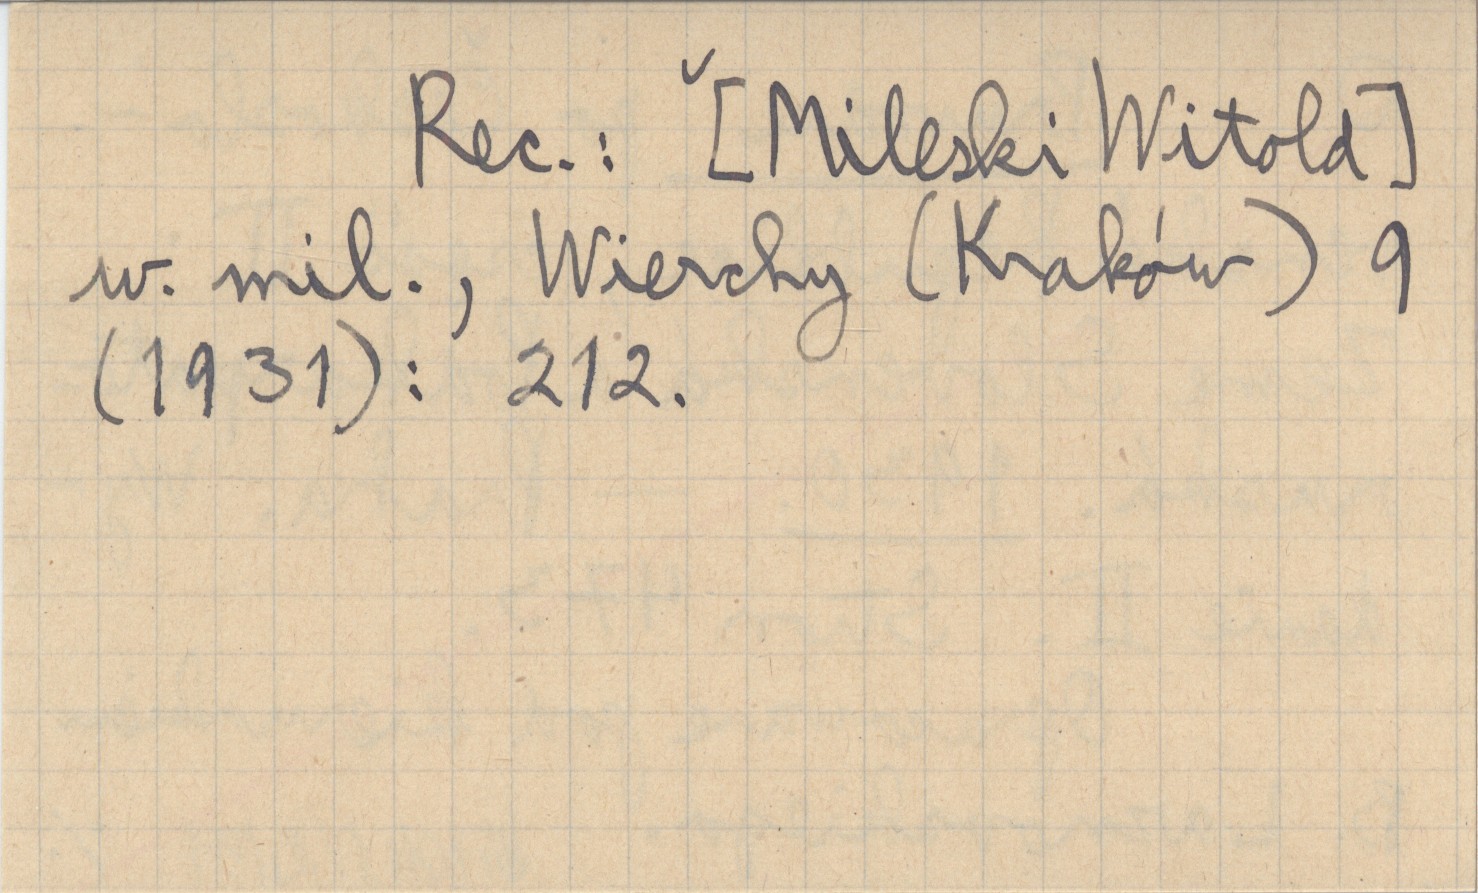 Rec.: [Mileski Witold]
w. mil., Wierchy (Kraków) 9
(1931): 212.